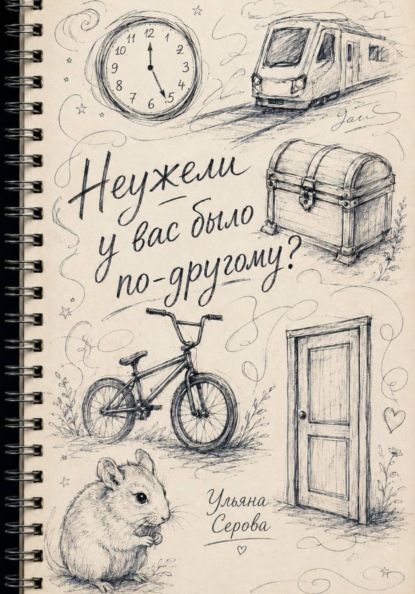 12
11 1
10 2
9 3
8 4
7 5
6
Неужели
у вас было
по-другому?
Ульяна
Серова